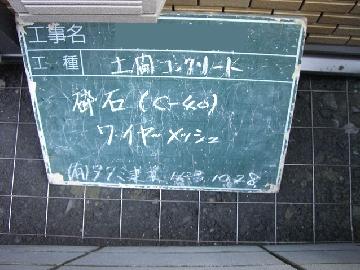 工事名
工種 土間コンクリート
砕石(C-40)
ワイヤーメッシュ
10.28